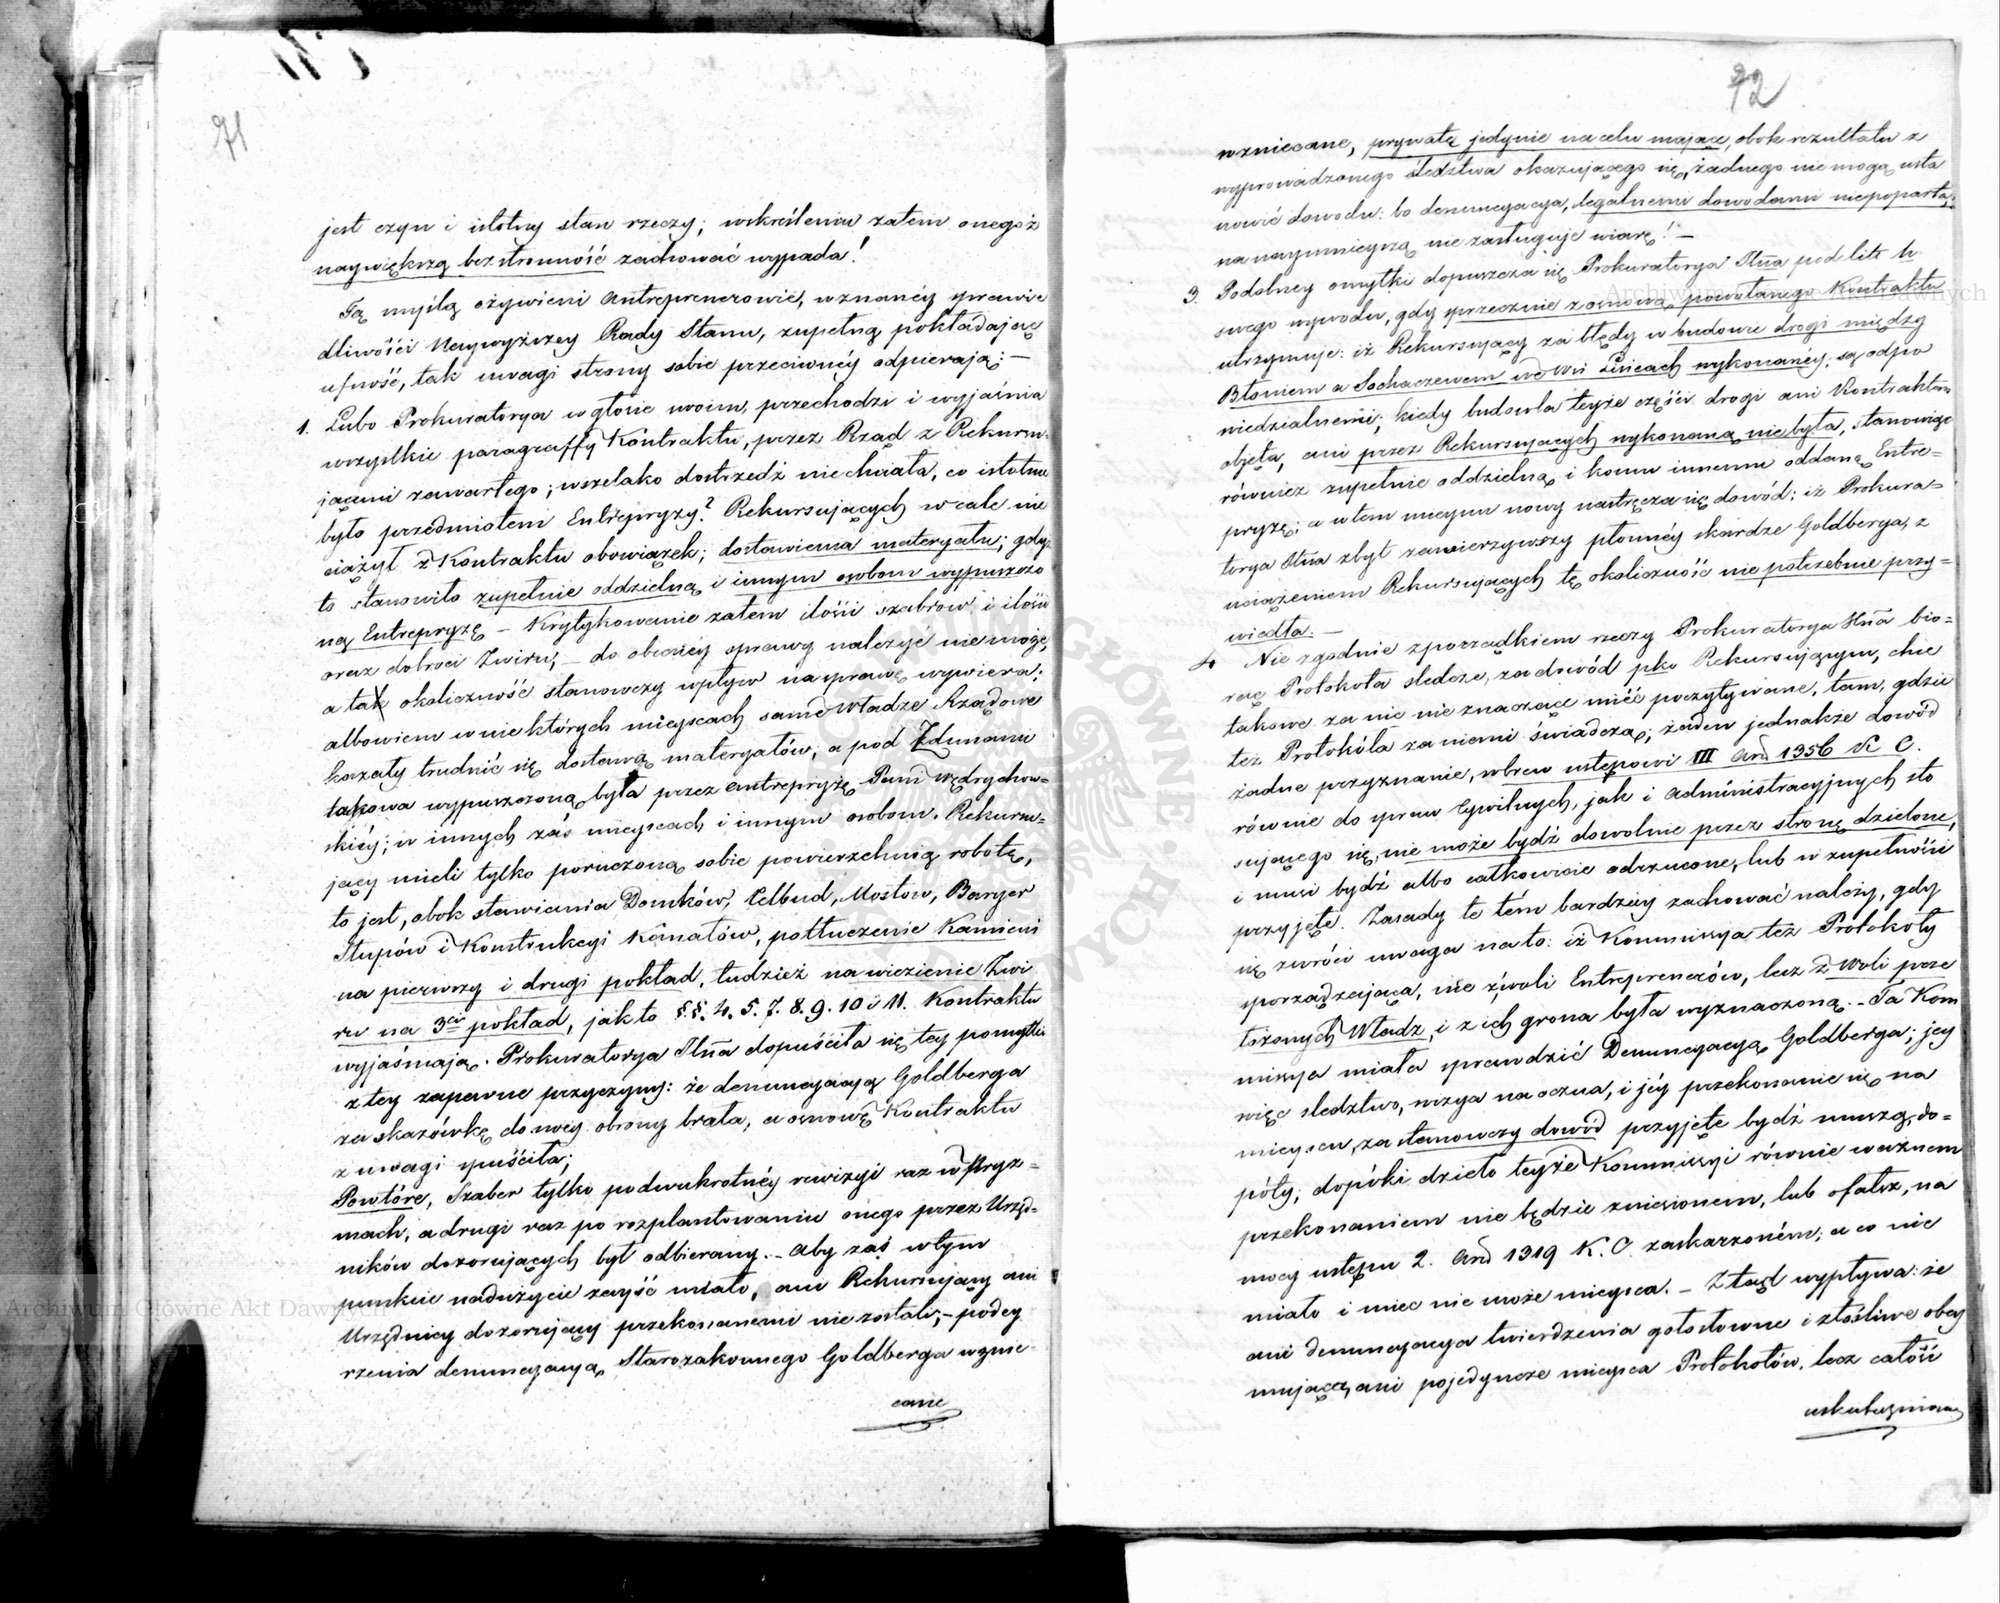 71
jest czyn i istotny stan rzeczy; wskreśleniu zatem onegoż
największą bezstronność zachować wypada!
Tą myślą ożywieni Antreprenerowie, w znanéy sprawie
dliwości Naywyższey Rady Stanu, zupełną pokładające
ufność, tak uwagi strony sobie przeciwnéy odpierają: —
1. Lubo Prokuratorya w głosie swoim, przechodzi i wyjaśnia
wszystkie paragraffy Kontraktu, przez Rząd z Rekursu-
jącemi zawartego; wszelako dostrzedz nie chciała, co istotnie
było przedmiotem Entrepryzy? Rekursujących wcale nie
ciążył z Kontraktu obowiązek; dostawienia materyału; gdyż
to stanowiło zupełnie oddzielną i innym osobom wypuszczo
ną Entrepryzę — Krytykowanie zatem ilości szabrow i ilości
oraz dobroci Żwiru, — do obecnéy sprawy należyć nie może,
a tak okoliczność stanowczy wpływ na sprawę wywiera;
albowiem w nie których mieyscach same Władze Rządowe
kazały trudnić się dostawą materyałów, a pod Zdunami
takowa wypuszczoną była przez entrepryzę Pani Wędrychow-
skiéy; w innych zaś mieyscach i innym osobom. Rekursu-
jący mieli tylko poruczoną sobie powierzchnią robotę,
to jest, obok stawiania Domków, Celbud, Mostów, Baryer
Słupów i Konstrukcyi Kanałów, potłuczenie Kamieni
na pierwszy i drugi pokład, tudzież nawiezienie Żwi
ru na 3ci pokład, jak to §.§. 4. 5. 7. 8. 9. 10 i 11. Kontraktu
wyjaśniają. Prokuratorya Jlna dopuściła się tey pomyłki
z tey zapewne przyczyny: że denuncyacyą Goldberga
za skazówkę do swey obrony brała, a osnowę Kontraktu
z uwagi spuściła;
Powtóre, Szaber tylko po dwukrotnéy rewizyi raz w Pryz-
mach, a drugi raz po rozplantowaniu onego przez Urzęd-
ników dozorujących był odbierany. — Aby zaś w tym
punkcie nadużycie zayść miało, ani Rekursujący ani
Urzędnicy dozorujący przekonanemi nie zostali; — podey
rzenia denuncyacyą Starozakonnego Goldberga wznie-
cane
72
wzniecane, prywatę jedynie na celu mające, obok rezultatu z
wyprowadzonego śledztwa okazującego się, żadnego nie mogą usta
nowić dowodu: bo denuncyacya, legalnemi dowodami niepoparta,
na naymnieyszą nie zasługuje wiarę! —
3. Podobney omyłki dopuszcza się Prokuratorya Jlna pod lit: h.
swego wywodu, gdy sprzecznie z osnową powołanego Kontraktu
utrzymuje: iż Rekursujący za błędy w budowie drogi między
Błoniem a Sochaczewem we Wsi Lisicach wykonanéy, są odpo
wiedzialnemi; kiedy budowla teyże części drogi ani Kontraktem
objęta, ani przez Rekursujących wykonaną nie była, stanowiąc
również zupełnie oddzielną i komu innemu oddaną Entre-
pryzę; a w tem mieyscu nowy nastręcza się dowód: iż Prokura-
torya Jlna zbyt zawierzywszy płonnéy skardze Goldberga, z
uciążeniem Rekursujących tę okoliczność nie potrzebnie przy-
wiodła. —
4 Nie zgodnie z porządkiem rzeczy Prokuratorya Jlna bio-
rąc Protokoła śledcze, za dowód pko Rekursującym, chce
takowe za nic nie znaczące mieć poczytywane, tam, gdzie
też Protokóła za niemi świadczą; żaden jednakże dowód
żadne przyznanie, wbrew ustępowi III Art 1356 K C.
równie do spraw Cywilnych, jak i Administracyjnych sto
sującego się, nie może bydź dowolnie przez stronę dzielone,
i musi bydź albo całkowicie odrzucone, lub w zupełności
przyjęte. Zasady te tém bardziéy zachować należy, gdy
się zwróci uwaga na to: iż Kommissya też Protokoły
sporządzająca, nie z woli Entreprenerów, lecz z Woli prze
łożonych Władz, i z ich grona była wyznaczoną. — Ta Kom
missya miała sprawdzić Denuncyacyą Goldberga; jey
więc śledztwo, wizya na oczna, i jéy przekonanie się na
mieyscu, za stanowczy dowód przyjęte bydź muszą, do-
póty, dopóki dzieło teyże Kommissyi równie ważnem
przekonaniem nie będzie zniesionem, lub o fałsz, na
mocy ustępu 2. Art 1319 K. C. zaskarzoném; a co nie
miało i mieć nie może mieysca. — Ztąd wypływa: że
ani denuncyacya twierdzenia gołosłowne i złośliwe obey
mująca, ani pojedyncze mieysca Protokołów, lecz całość